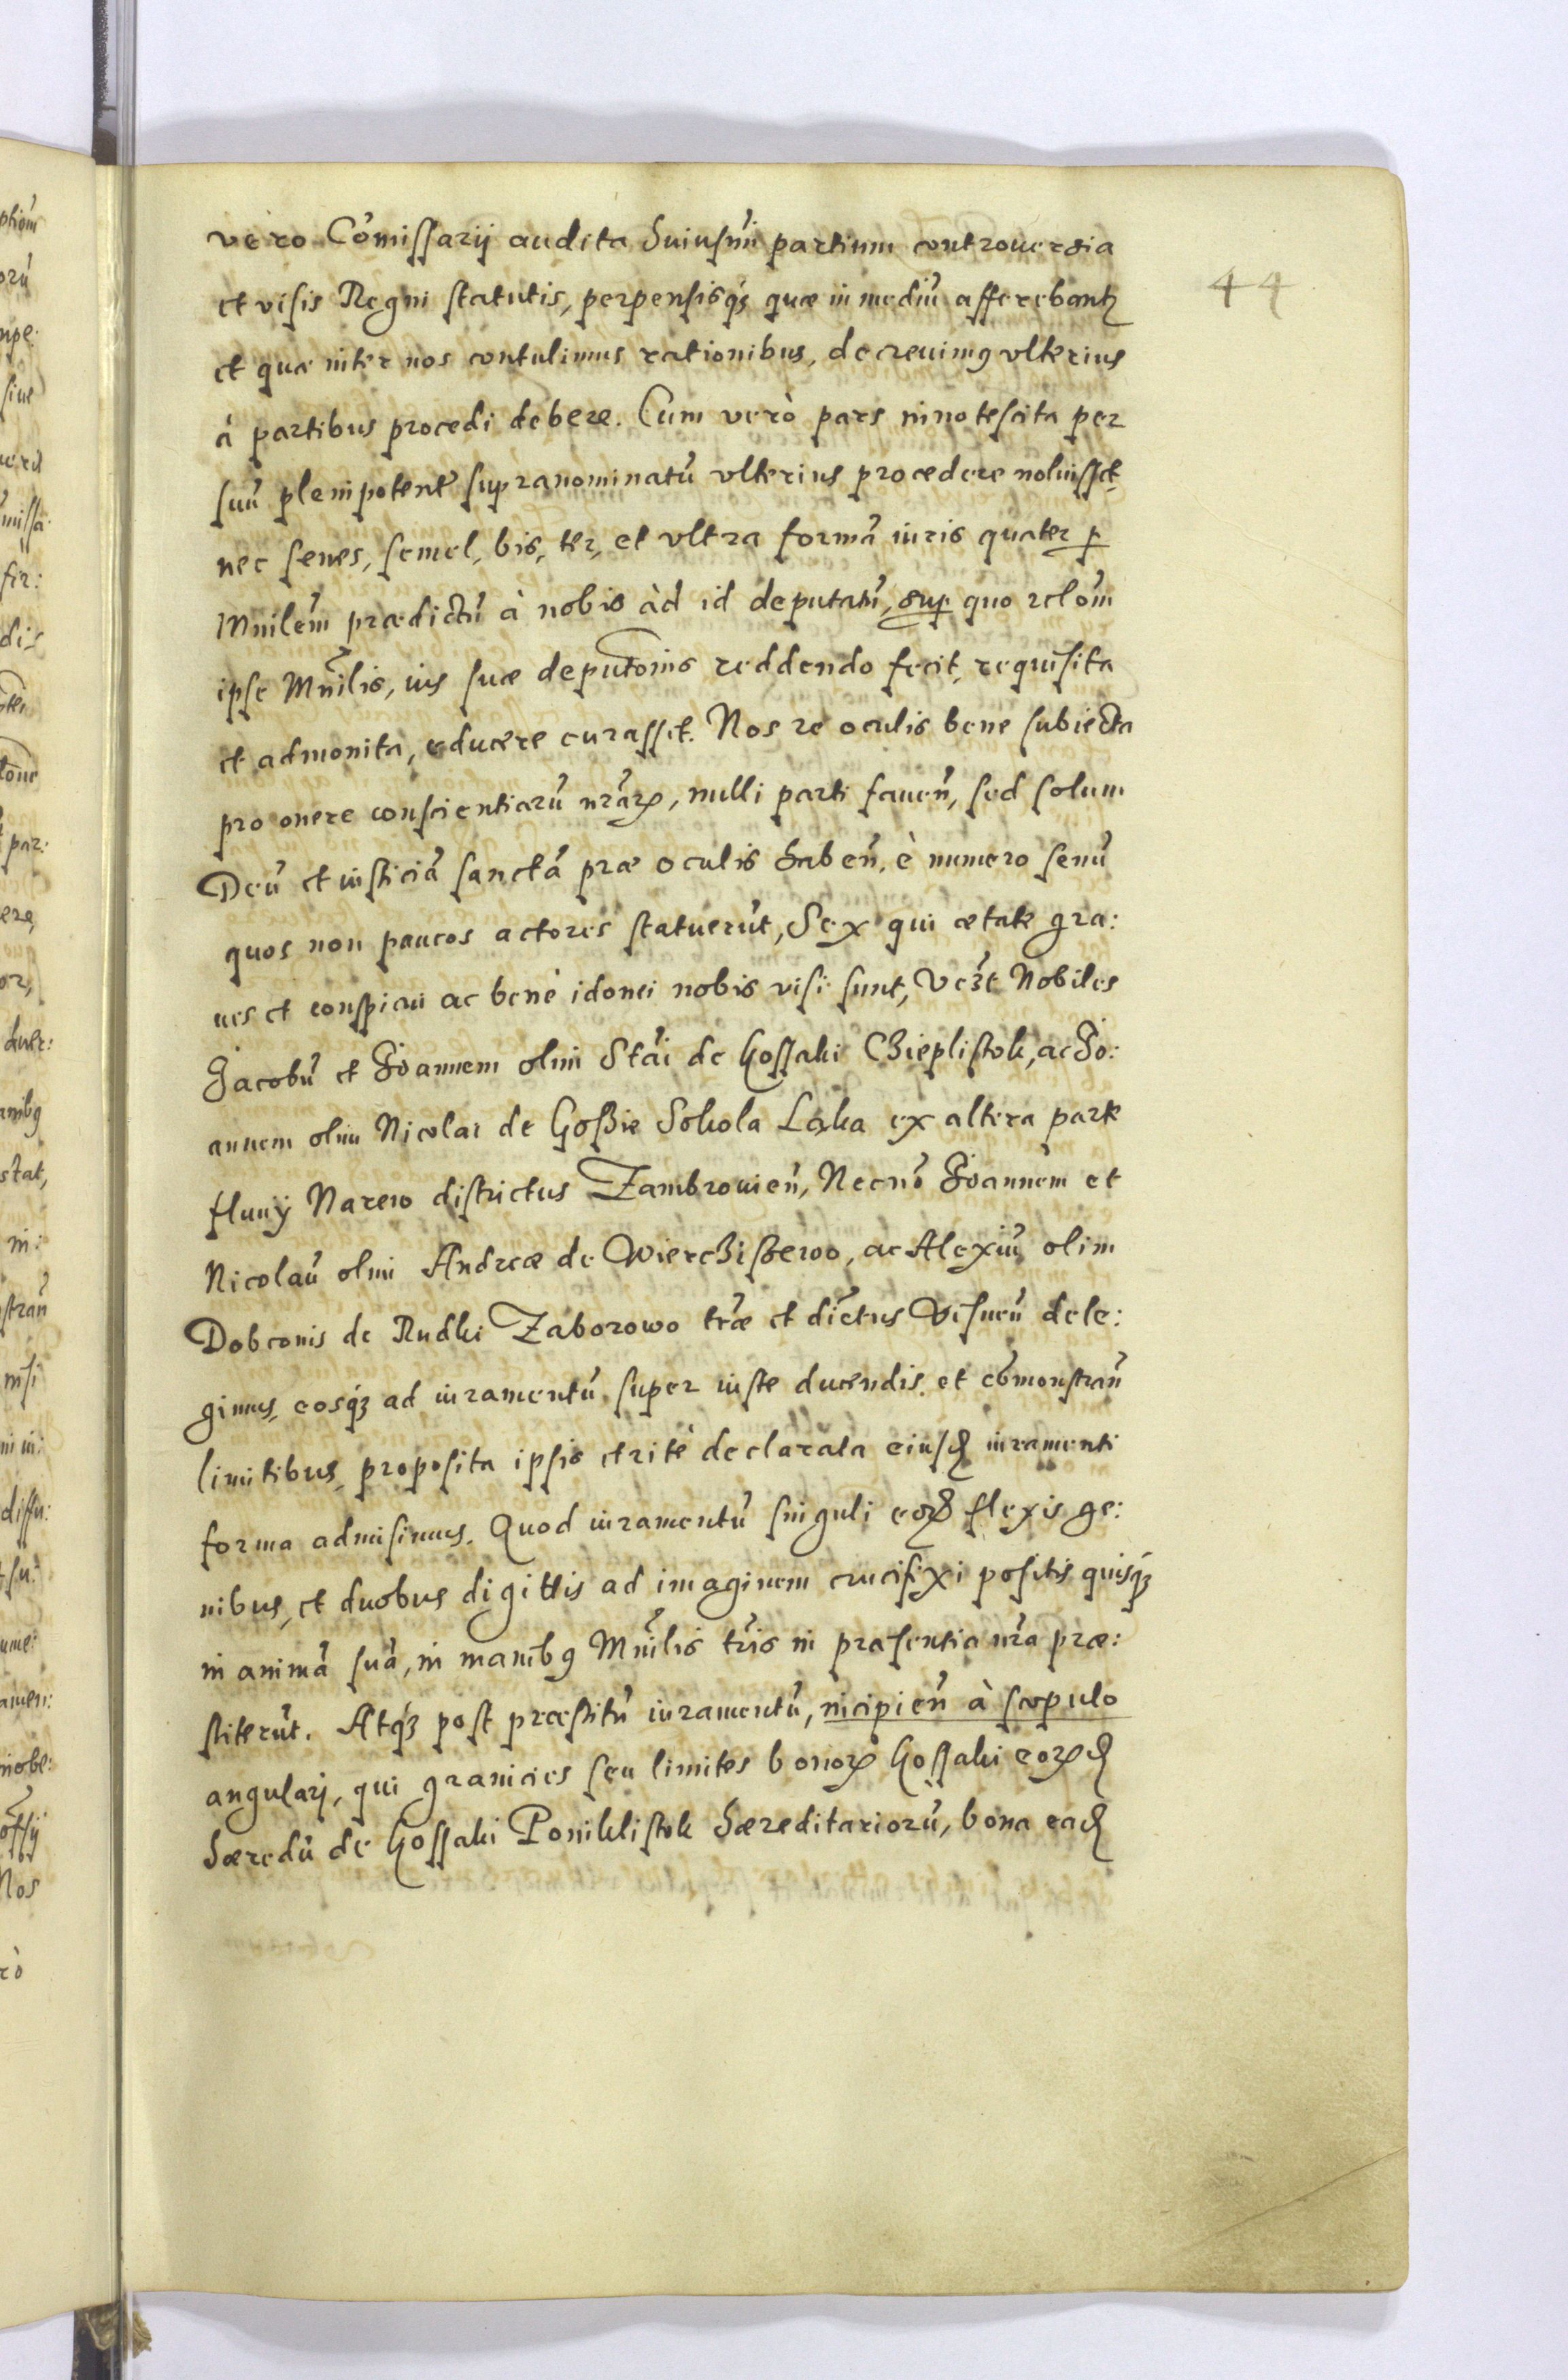 vero Cõmissarij audita huiusmi partium controuersia
et visis Regni statutis, perpensisq; quæ in mediũ afferebantr
et quæ inter nos contulimus rationibus, decreuim9 vlterius
à partibus procedi debere. Cum verò pars innotescita per
suũ plenipotent supranominatũ vlterius procedere noluisset,
nec senes, semel, bis, ter, et vltra formã iuris quater p
Mnilem prædictũ à nobis àd id deputatũ, sup quo relõm
ipse Mnilis, uis suæ deputõnis reddendo fecit, requisita
et admonita, educere curasset. Nos re oculis bene subiecta
pro onere conscientiarũ nrãrꝝ, nulli parti fauen̄, sed solum
Deũ et iusticiã sanctã præ oculis haben̄, è numero senũ
quos non paucos actores statuerũt, Sex qui ætate gra:
ues et conspicui ac benè idonei nobis visi sunt, Vczt Nobiles
Jacobũ et Joannem olim Stãi de Gossaki Chieplistok, ac Jo:
annem olim Nicolai de Goßie Sokola Laka ex altera parte
fluuij Narew districtus Zambrouien̄, Necnõ Joannem et
Nicolaũ olim Andreæ de Wierchißewo, ac Alexiũ olim
Dobconis de Rudki Zaborowo træ et dictus Visnen̄ dele:
gimus, eosq; ad iuramentũ super iuste ducendis et cõmonstran̄
limitibus, proposita ipsis et ritè declarata eiusd iuramenti
forma admisimus. Quod iuramentũ singuli eorꝝ flexis ge:
nibus, et duobus digittis ad imaginem crucifixi positis quisq;
in animã suã, in manib9 Mnilis tris in præsentia nra præ:
stiterũt. Atq; post præstitũ iuramentũ, incipien̄ à scopulo
angulari, qui granicies seu limites bonorꝝ Gossaki eorꝝd
hæredũ de Gossaki Poniklistok hæreditariorũ, bona ead
44